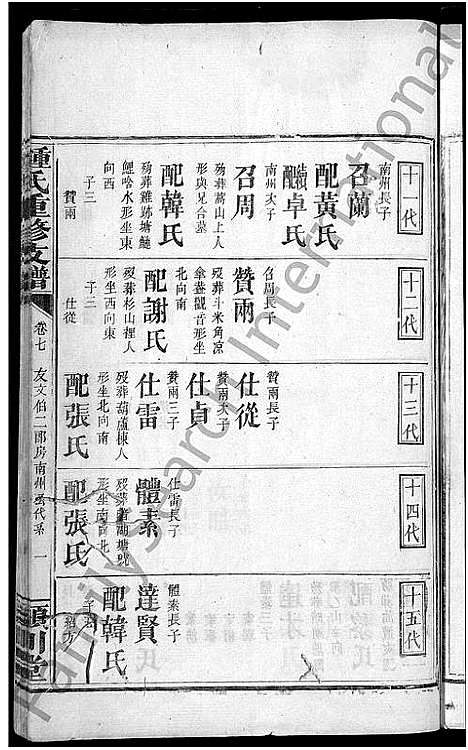 十一代
南州長子
召蘭
配黃氏
續配卓氏
南州次子
召周
殁葬蒿山上人
形與兄合墓
配韓氏
殁葬雞跡塘鯉
鯉哈水形坐東
向西
子三
贊雨
十二代
召周長子
贊雨
殁葬斗米角凉
傘蓋觀音形坐
北向南
配謝氏
殁葬杉山裡人
形坐西向東
子三
仕從
十三代
贊雨長子
仕從
贊雨次子
仕貞
贊雨三子
仕雷
殁葬葫蘆棟人
形坐北向南
配張氏
十四代
仕雷長子
體素
形坐南向北
配張氏
十五代
體素長子
達賢
配韓氏
鍾氏重修支譜
卷七
友文伯二郎房南州
一
潁川堂
FamilySearch International